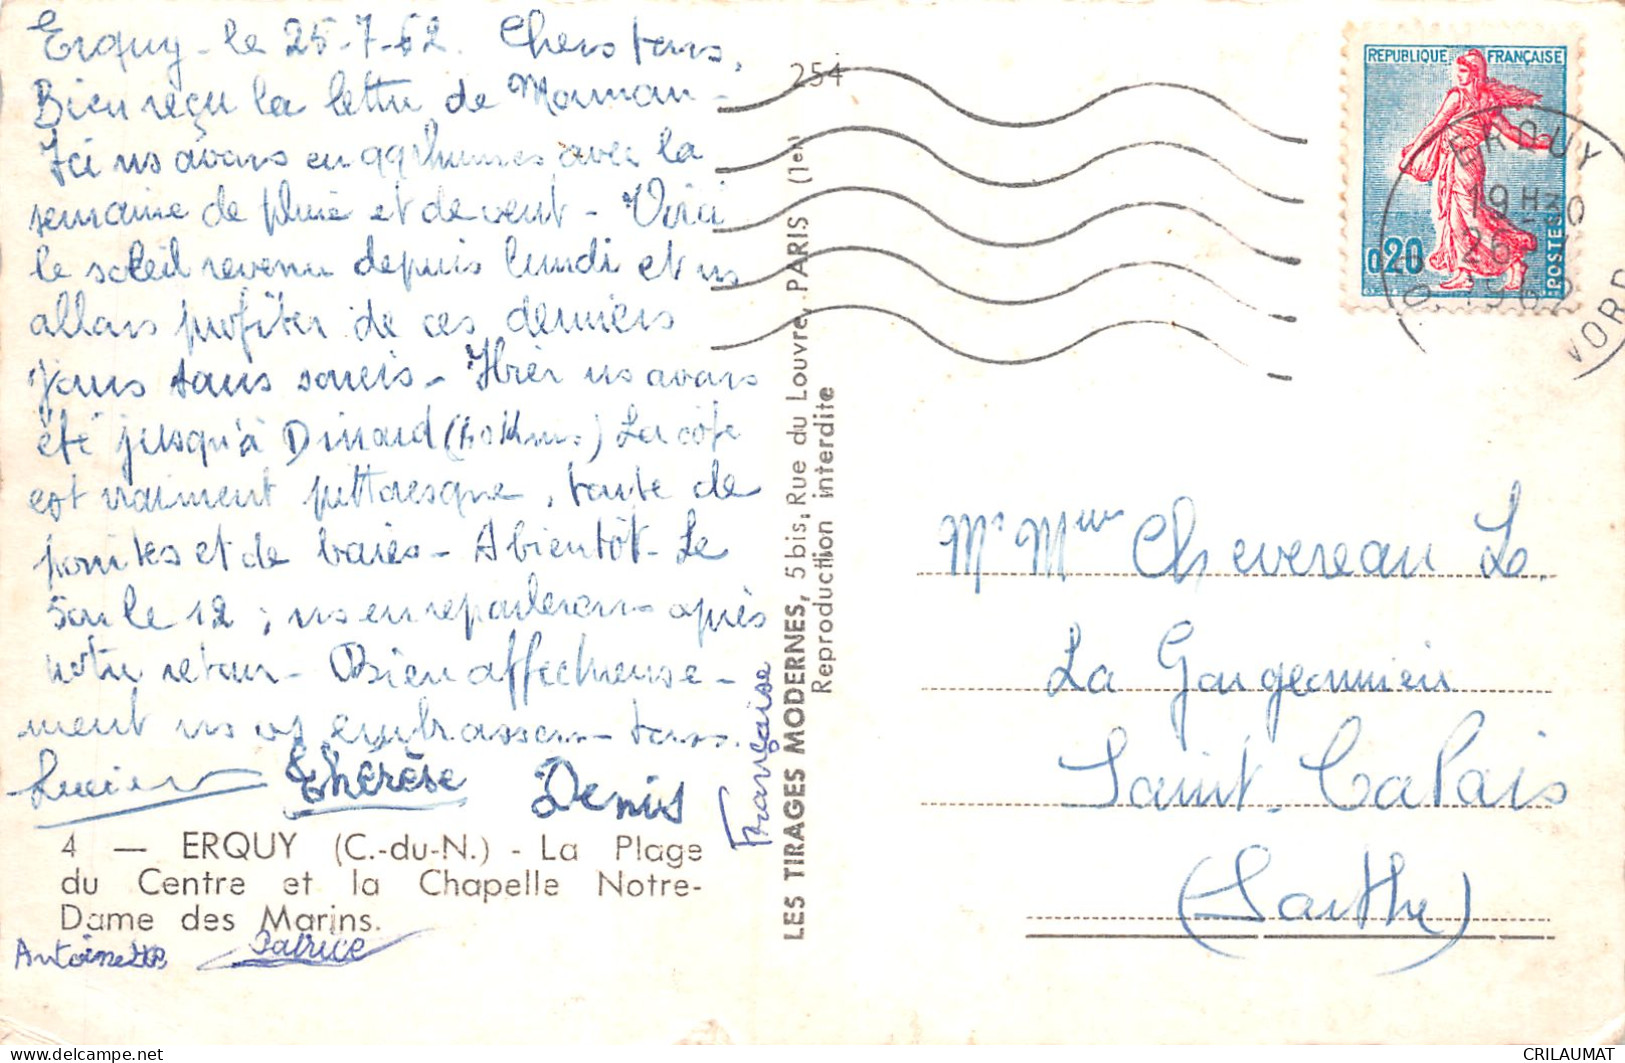 Erquy - le 25-7-62. Chers tous,
Bien reçu la lettre de Maman -
Ici ns avons eu qq rhumes avec la
semaine de pluie et de vent - Voici
le soleil revenu depuis lundi et ns
allons profiter de ces derniers
jours sans soucis - Hier ns avons
été jusqu'à Dinard (40 kms) La côte
est vraiment pittoresque, toute de
pointes et de baies - A bientôt - Le
12 ; ns en reparlerons après
notre retour - Bien affectueuse-
ment ns vs embrassons tous.
Lucien Thérèse Denis
Française
4 — ERQUY (C.-du-N.) - La Plage
du Centre et la Chapelle Notre-
Dame des Marins.
Antoinette Patrice
254
LES TIRAGES MODERNES, 5 bis, Rue du Louvre, PARIS (1er)
Reproduction interdite
REPUBLIQUE FRANÇAISE
0,20
POSTES
ERQUY
19 H30
26
1962
C. DU NORD
Mr Mme Chevereau L.
La Gougeonnien
Saint-Calais
(Sarthe)
CRILAUMAT